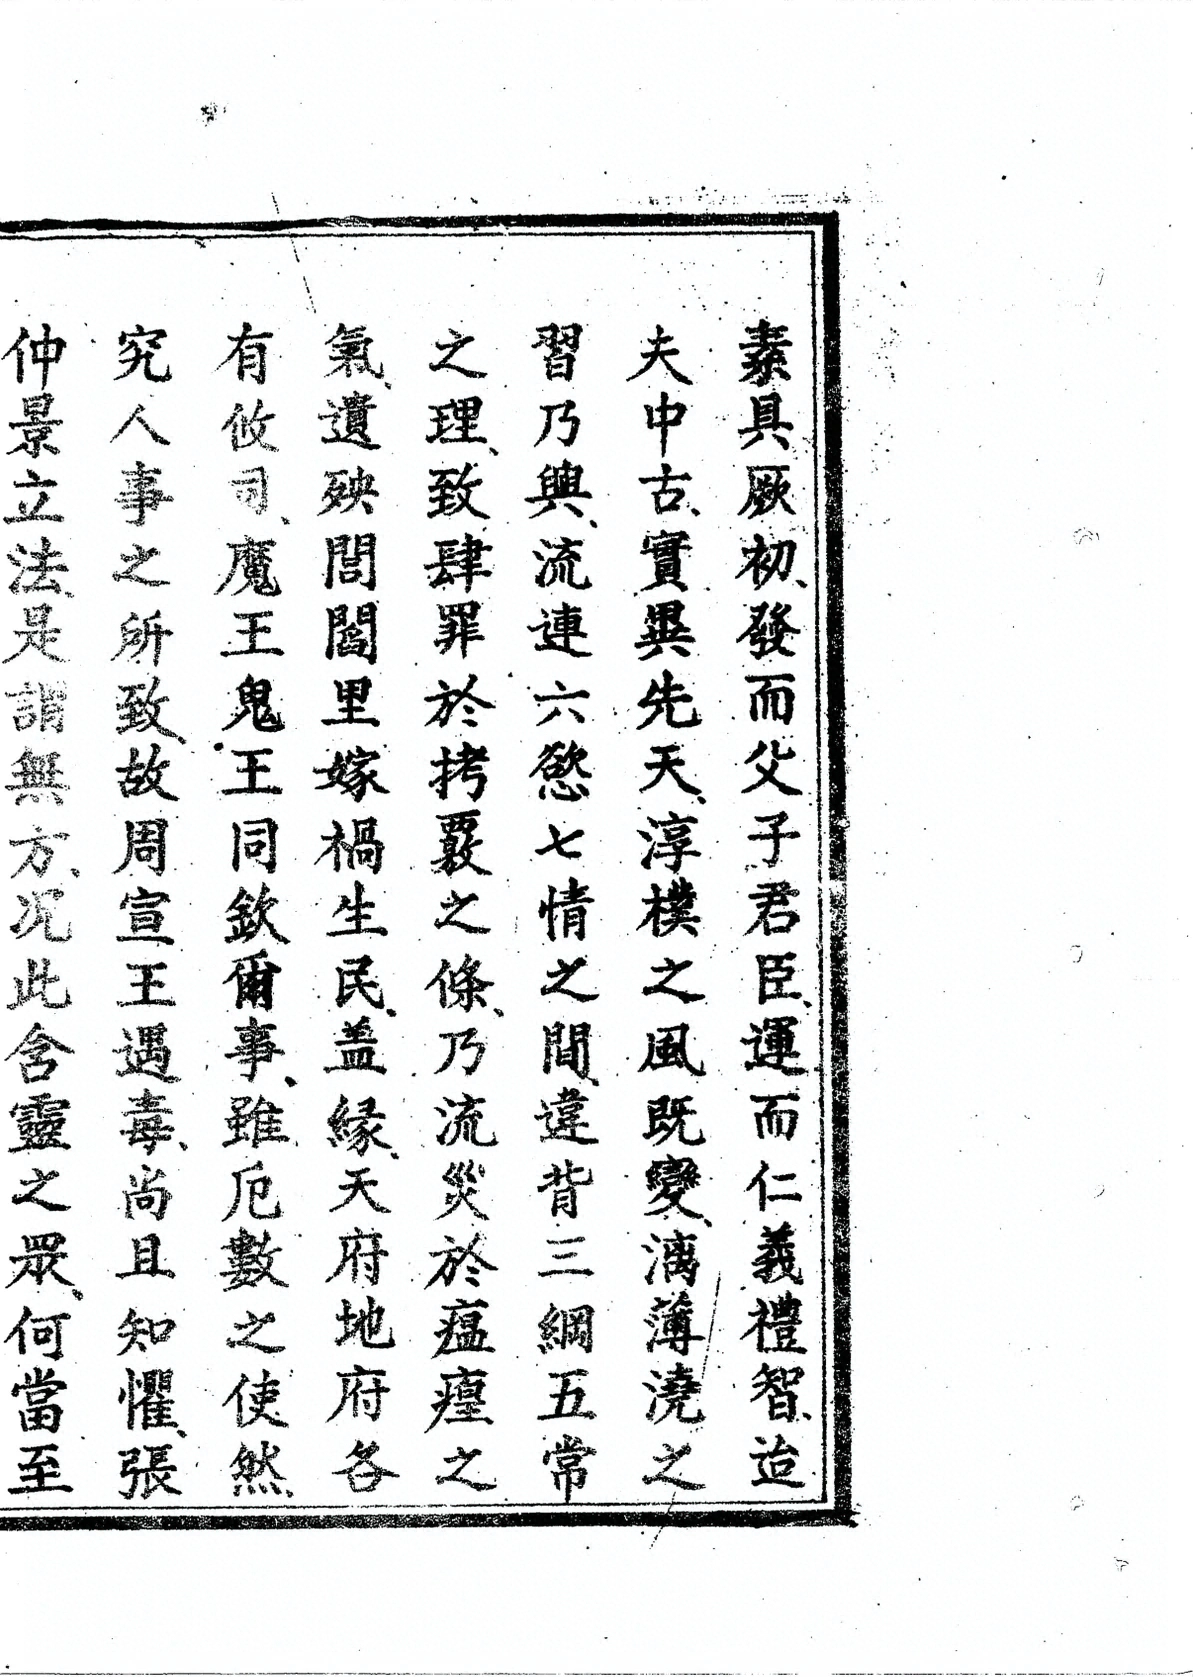 素具厥初、發而父子君臣、運而仁義禮智、迨
夫中古、實異先天、淳樸之風既變、漓薄澆之
習乃興、流連六慾七情之間、違背三綱五常
之理、致肆罪於拷覈之條、乃流災於瘟㾮之
氣、遺殃閭閻里嫁禍生民、蓋緣、天府地府各
有攸司、魔王鬼王同欽爾事、雖厄數之使然、
究人事之所致、故周宣王遇毒、尚且知懼、張
仲景立法、是謂無方、况此含靈之眾、何當至